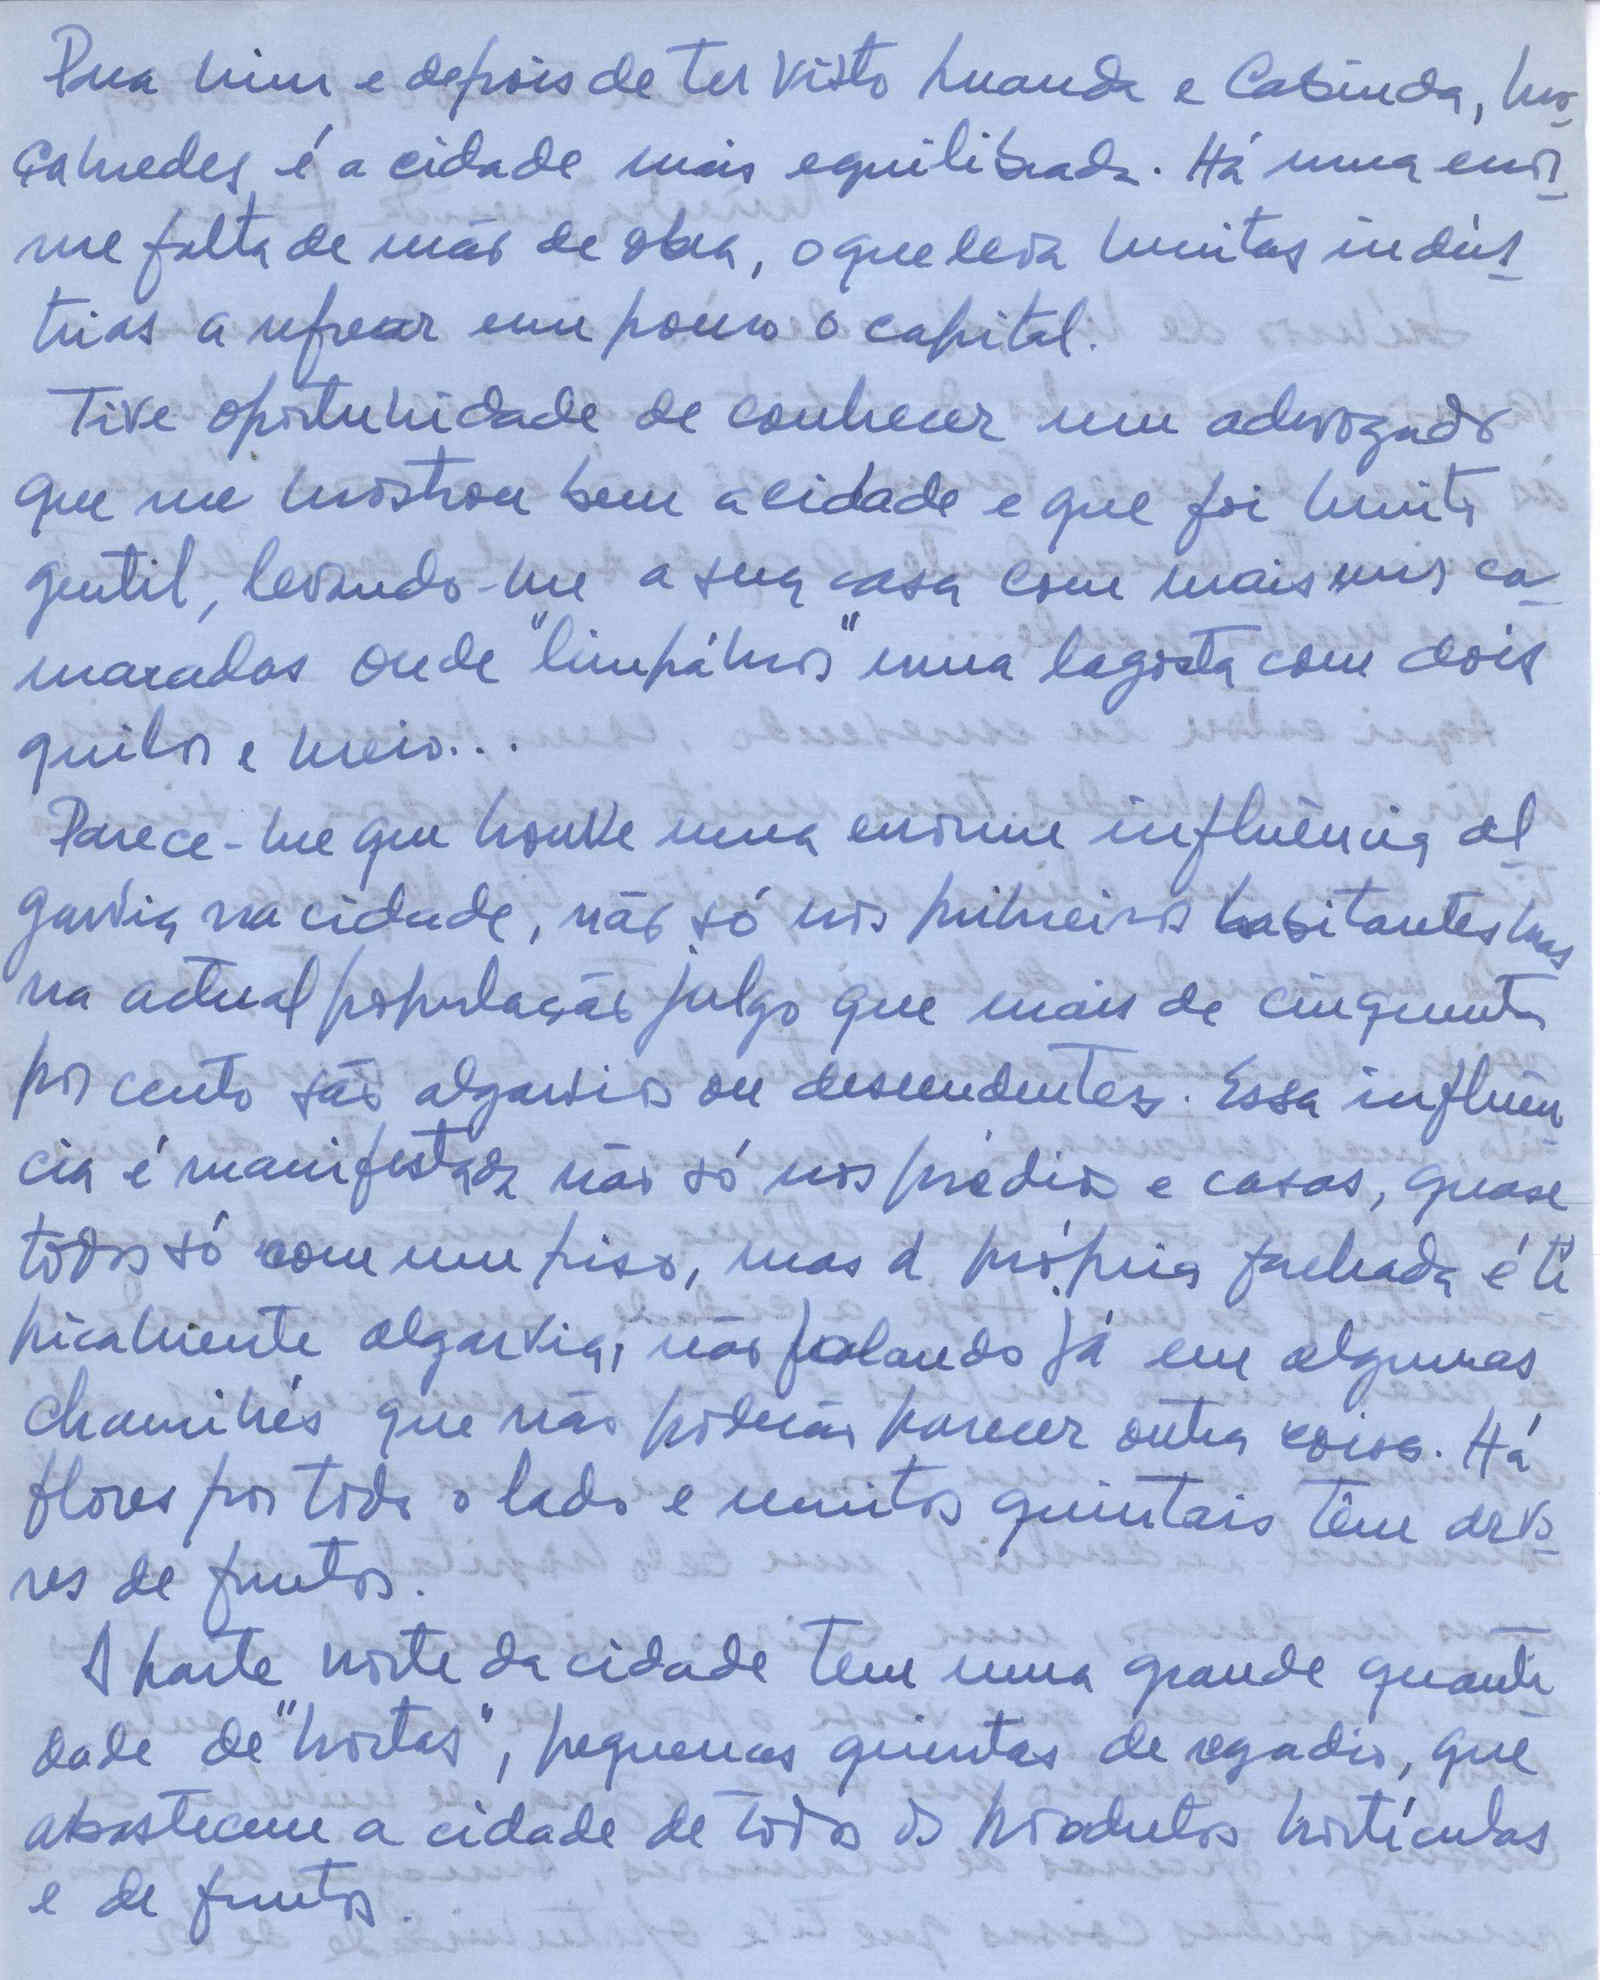 Para mim e depois de ter visto Luanda e Cabinda, Mo-
çamedes é a cidade mais equilibrada. Há uma enor-
me falta de mão de obra, o que leva muitas indús-
trias a refrear um pouco o capital.
Tive oportunidade de conhecer um advogado
que me mostrou bem a cidade e que foi muito
gentil, levando-me a sua casa com mais uns ca-
maradas onde "limpámos" uma lagosta com dois
quilos e meio...
Parece-me que houve uma enorme influência al-
garvia na cidade, não só nos primeiros habitantes mas
na actual população julgo que mais de cinquenta
por cento são algarvios ou descendentes. Essa influên-
cia é manifestada não só nos prédios e casas, quase
todos só com um piso, mas a própria fachada é ti-
picamente algarvia, não falando já em algumas
chaminés que não poderão parecer outra coisa. Há
flores por todo o lado e muitos quintais têm árvo-
res de frutos.
A parte norte da cidade tem uma grande quanti-
dade de "hortas", pequenas quintas de regadio, que
abastecem a cidade de todos os produtos hortículas
e de frutos.